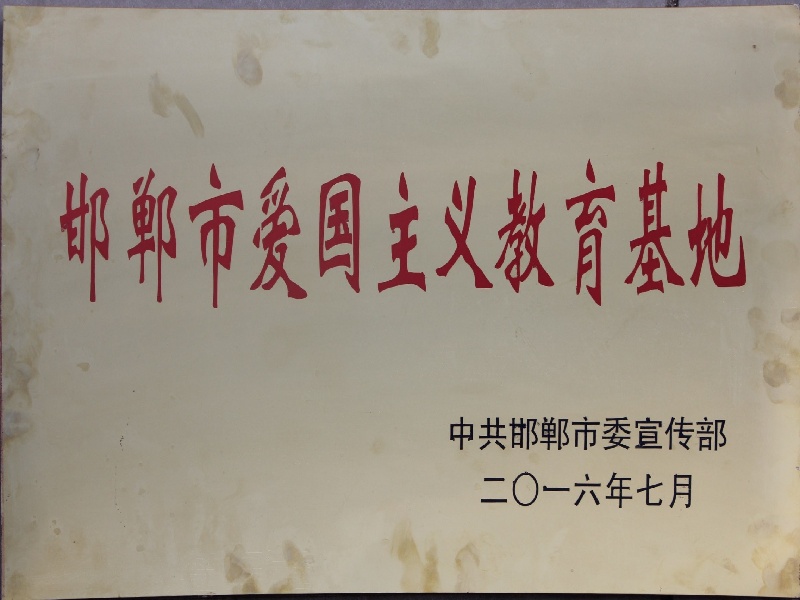 邯郸市爱国主义教育基地
中共邯郸市委宣传部
二〇一六年七月